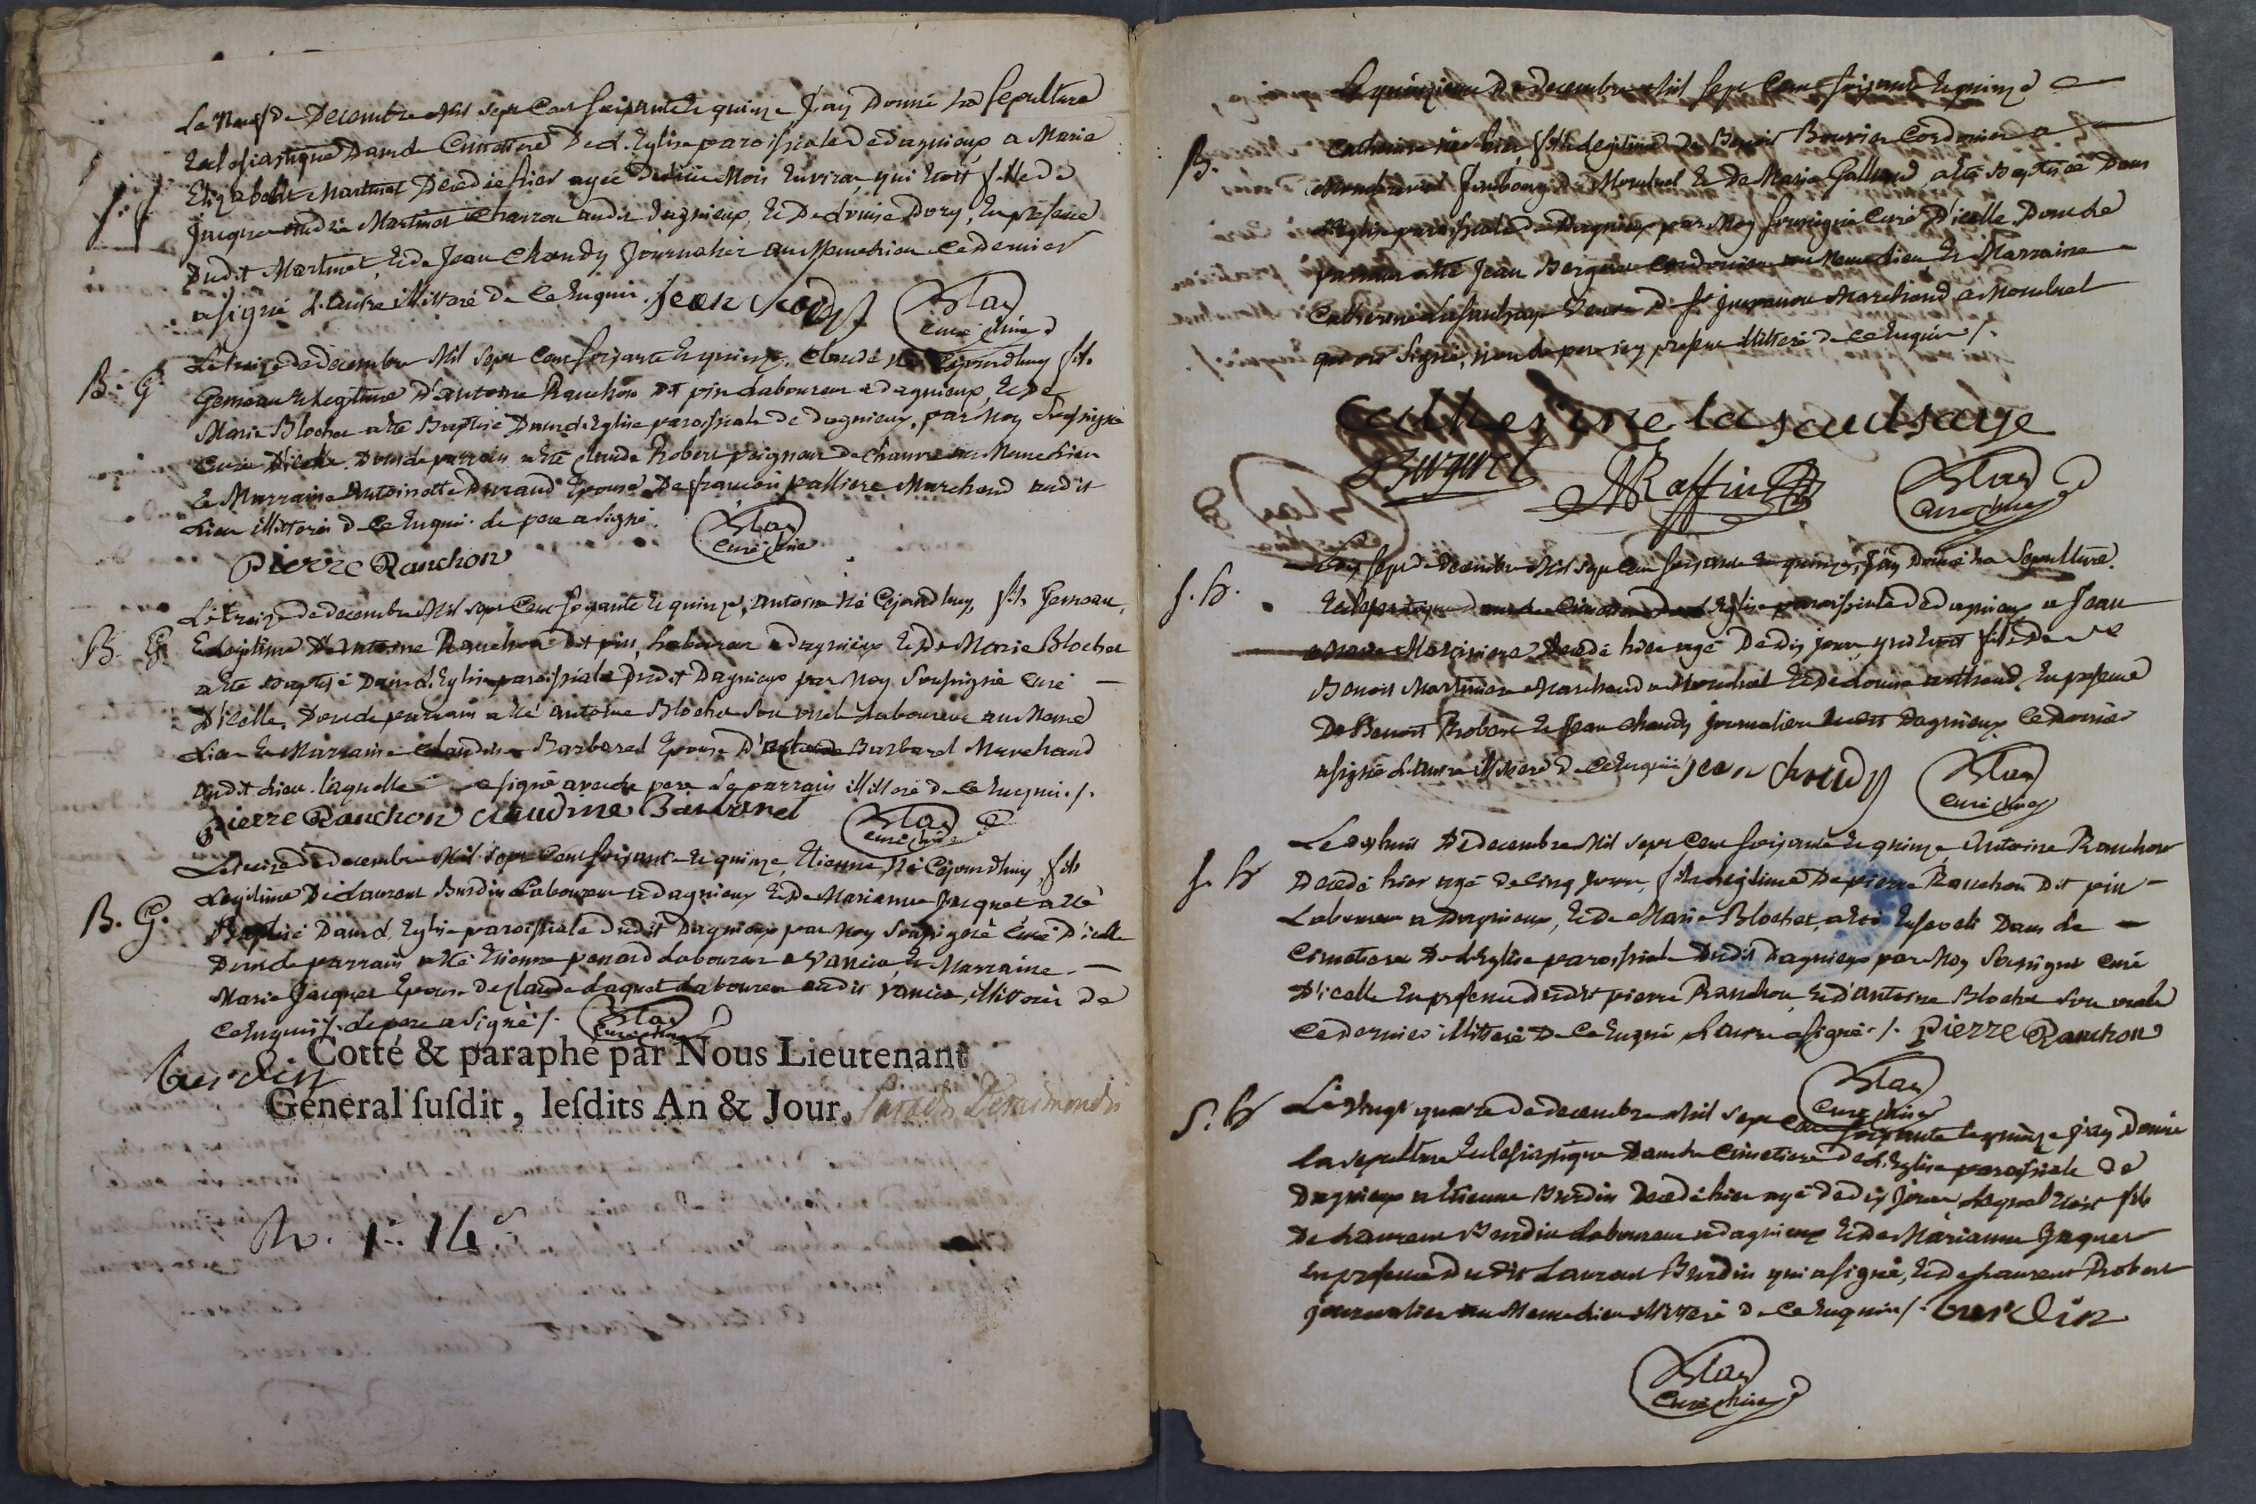 Le Neuf de Decembre Mil sept Cent soixante et quinze J'ay Donné La sepulture
Eclesiastique Dans le Cimetiere De d. Eglise paroissiale de dagnieux a Marie
Elizabeth Martinet Decedée hier agée De Mois Environ, qui Etoit fille de
Jacque Martinet Charron audit dagnieux, et De Louise Dory, En presence
Dudit Martinet, et de Jean Chaudy Journalier au Meme Lieu Ce Dernier
a signé L'autre illitteré De Ce Enquis. Jean
curé
Le treize de decembre Mil Sept Cent soixante et quinze, Claude Né Cejourdhuy fils
B. G.
Gemeau et legitime d'antoine Ranchon Dit pin Laboureur a dagnieux, et De
Marie Blochet a été Baptisé Dans d. Eglise paroissiale de dagnieux, par Moy Soussigné
Curé D'icelle. Dont le parrain a été Claude Robert peigneur de chanvre au Meme Lieu
et Marraine Antoinette Durand Epouse De francois palliere Marchand audit
Lieu illitterés de Ce Enquis. le pere a signé.
curé
Pierre Ranchon
Le treize de decembre Mil sept Cent soixante et quinze, antoine Né Cejourdhuy, fils Gemeau,
B. G.
Et legitime D'antoine Ranchon dit pin, Laboureur a dagnieux et De Marie Blochet
a été Baptisé Dans d. Eglise paroissiale dudit Dagnieux par Moy Soussigné Curé
D'icelle, Dont le parrain a été antoine Blochet Son oncle Laboureur au Meme
Lieu et Marraine Claudine Barbaret Epouse D' Barbaret Marchand
audit Lieu. laquelle a signé avec le pere Le parrain illitteré de Ce Enquis./.
Pierre Ranchon Claudine Barbaret
curé
Le de decembre Mil sept Cent soixante et quinze, Etienne Né Cejourdhuy, fils
B. G.
Legitime De Laurent Burdin Laboureur a dagnieux et De Marianne Jacquet a été
Baptisé Dans d. Eglise paroissiale Dudit Dagnieux par Moy Soussigné Curé D'icelle
Dont le parrain a été Etienne penard Laboureur a Vancia, et Marraine
Marie Jacquet Epouse De Claude Laquet Laboureur audit Vancia, illitterés De
Ce Enquis/. le pere a Signé/.
burdin
Cotté & paraphé par Nous Lieutenant
Général susdit, lesdits An & Jour.
Le quinzieme De decembre Mil sept Cent soixante et quinze
B.
Catherine née hier, fille legitime De Benoit Bouvier Cordonier a
fauxbourg de Montluel et De Marie Galland a été Baptisée Dans
L'Eglise paroissiale de Dagnieux par Moy soussigné Curé D'icelle. Dont le
parrain a été Jean Bergeret Cordonier au Meme Lieu et Marraine
Catherine Lasausaye Veuve De Sr Marchand a Montluel
qui ont Signé, non le pere icy present illitteré de Ce Enquis/.
Catherine lasaulsaye
Bergeret Raffin
curé
Le dix sept De decembre Mil sept Cent soixante et quinze, J'ay Donné La Sepulture
Eclesiastique dans le Cimetiere de d. Eglise paroissiale de dagnieux a Jean
Decedé hier agé De dix jours, qui Etoit fils De
Benoit Marchand a Montluel et De Louise En presence
De Benoit Robert et Jean Chaudy journaliers audit Dagnieux, Ce Dernier
a signé L'autre illitteré De Ce Enquis Jean Choudy
curé
Le dix huit De decembre Mil sept Cent soixante et quinze, Antoine Ranchon
Decedé hier agé de Cinq Jours, fils legitime De pierre Ranchon Dit pin
Laboureur a Dagnieux, et De Marie Blochet, a été Enseveli Dans le
Cimetiere De L'Eglise paroissiale Dudit Dagnieux par Moy Soussigné Curé
D'icelle En presence dudit pierre Ranchon, et d'antoine Blochet Son oncle
Ce dernier illitteré De Ce Enquis L'autre a signé./. Pierre Ranchon
curé
Le Vingt quatre de decembre Mil sept Cent soixante et quinze j'ay Donné
la sepulture Eclesiastique Dans le Cimetiere de L'Eglise paroissiale de
Dagnieux a Etienne Burdin Decedé hier agé de dix jours Lequel Etoit fils
De Laurent Burdin Laboureur a dagnieux et De Marianne Jaquet
En presence dudit Laurent Burdin qui a signé, et de Laurent Robert
journalier au Meme Lieu illitteré De Ce Enquis/. burdin
curé